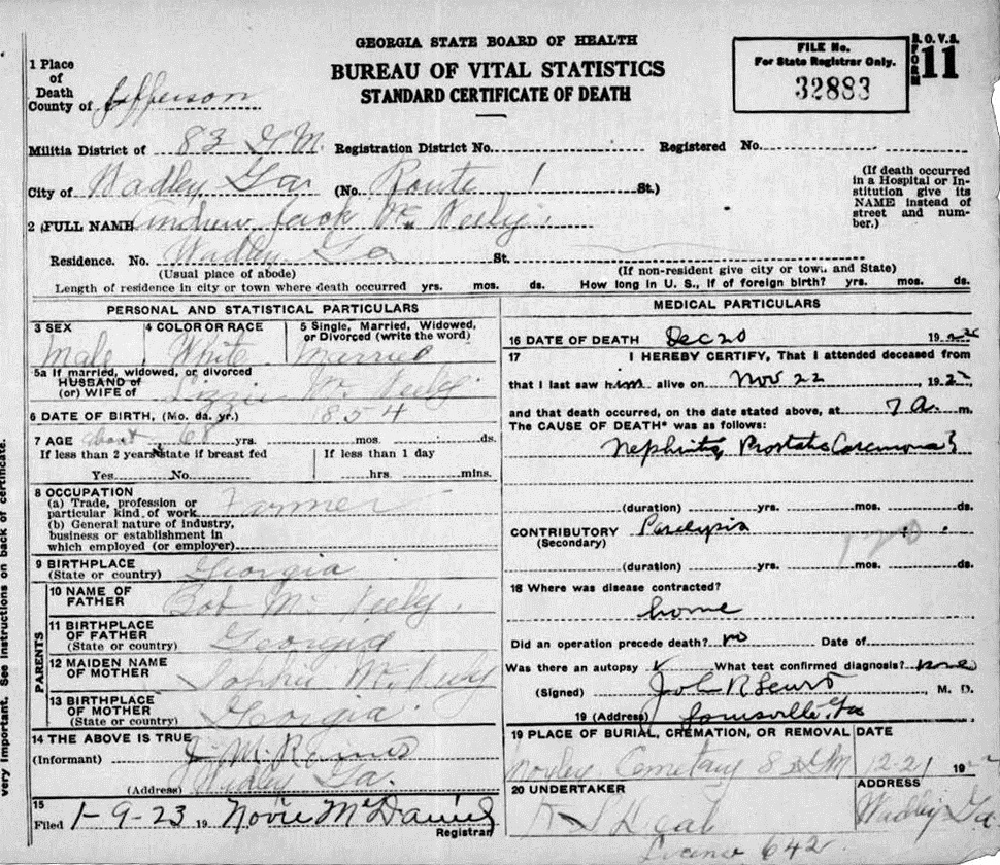 GEORGIA STATE BOARD OF HEALTH
BUREAU OF VITAL STATISTICS
STANDARD CERTIFICATE OF DEATH
FILE No.
For State Registrar Only.
32883
B. O. V. S.
FORM 11
1 Place
of
Death
County of Jefferson
Militia District of 83 G M. Registration District No. Registered No.
City of Wadley Ga (No. Route 1 St.)
(If death occurred
in a Hospital or In-
stitution give its
NAME instead of
street and num-
ber.)
2 FULL NAME Andrew Jack Mc Neely.
Residence. No. Wadley Ga St.
(Usual place of abode) (If non-resident give city or town and State)
Length of residence in city or town where death occurred yrs. mos. ds. How long in U. S., if of foreign birth? yrs. mos. ds.
PERSONAL AND STATISTICAL PARTICULARS
3 SEX 4 COLOR OR RACE 5 Single, Married, Widowed,
or Divorced (write the word)
Male White Married
5a If married, widowed, or divorced
HUSBAND of
(or) WIFE of Lizzie Mc Neely
6 DATE OF BIRTH, (Mo. da. yr.) 1854
7 AGE about 68 yrs. mos. ds.
If less than 2 years state if breast fed If less than 1 day
Yes No. hrs. mins.
8 OCCUPATION
(a) Trade, profession or
particular kind of work Farmer
(b) General nature of industry,
business or establishment in
which employed (or employer)
9 BIRTHPLACE
(State or country) Georgia
PARENTS
10 NAME OF
FATHER Bob Mc Neely.
11 BIRTHPLACE
OF FATHER
(State or country) Georgia
12 MAIDEN NAME
OF MOTHER Sophie Mc Neely
13 BIRTHPLACE
OF MOTHER
(State or country) Georgia.
14 THE ABOVE IS TRUE
(Informant) J. M.
(Address) Wadley Ga.
15
Filed 1-9-23 19 Novie McDaniel
Registrar
MEDICAL PARTICULARS
16 DATE OF DEATH Dec 20 19
17 I HEREBY CERTIFY, That I attended deceased from
that I last saw him alive on Nov 22, 1922,
and that death occurred, on the date stated above, at 7 a. m.
The CAUSE OF DEATH* was as follows:
Nephritis, Prostatic
(duration) yrs. mos. ds.
CONTRIBUTORY Paralysis
(Secondary)
(duration) yrs. mos. ds.
18 Where was disease contracted?
home
Did an operation precede death? no Date of
Was there an autopsy What test confirmed diagnosis? none
(Signed) John R Lewis, M. D.
19 (Address) Louisville, Ga
19 PLACE OF BURIAL, CREMATION, OR REMOVAL DATE
Cemetary 83 G M 12-21 19
20 UNDERTAKER ADDRESS
Deal Wadley Ga
License 642
very important. See instructions on back of certificate.